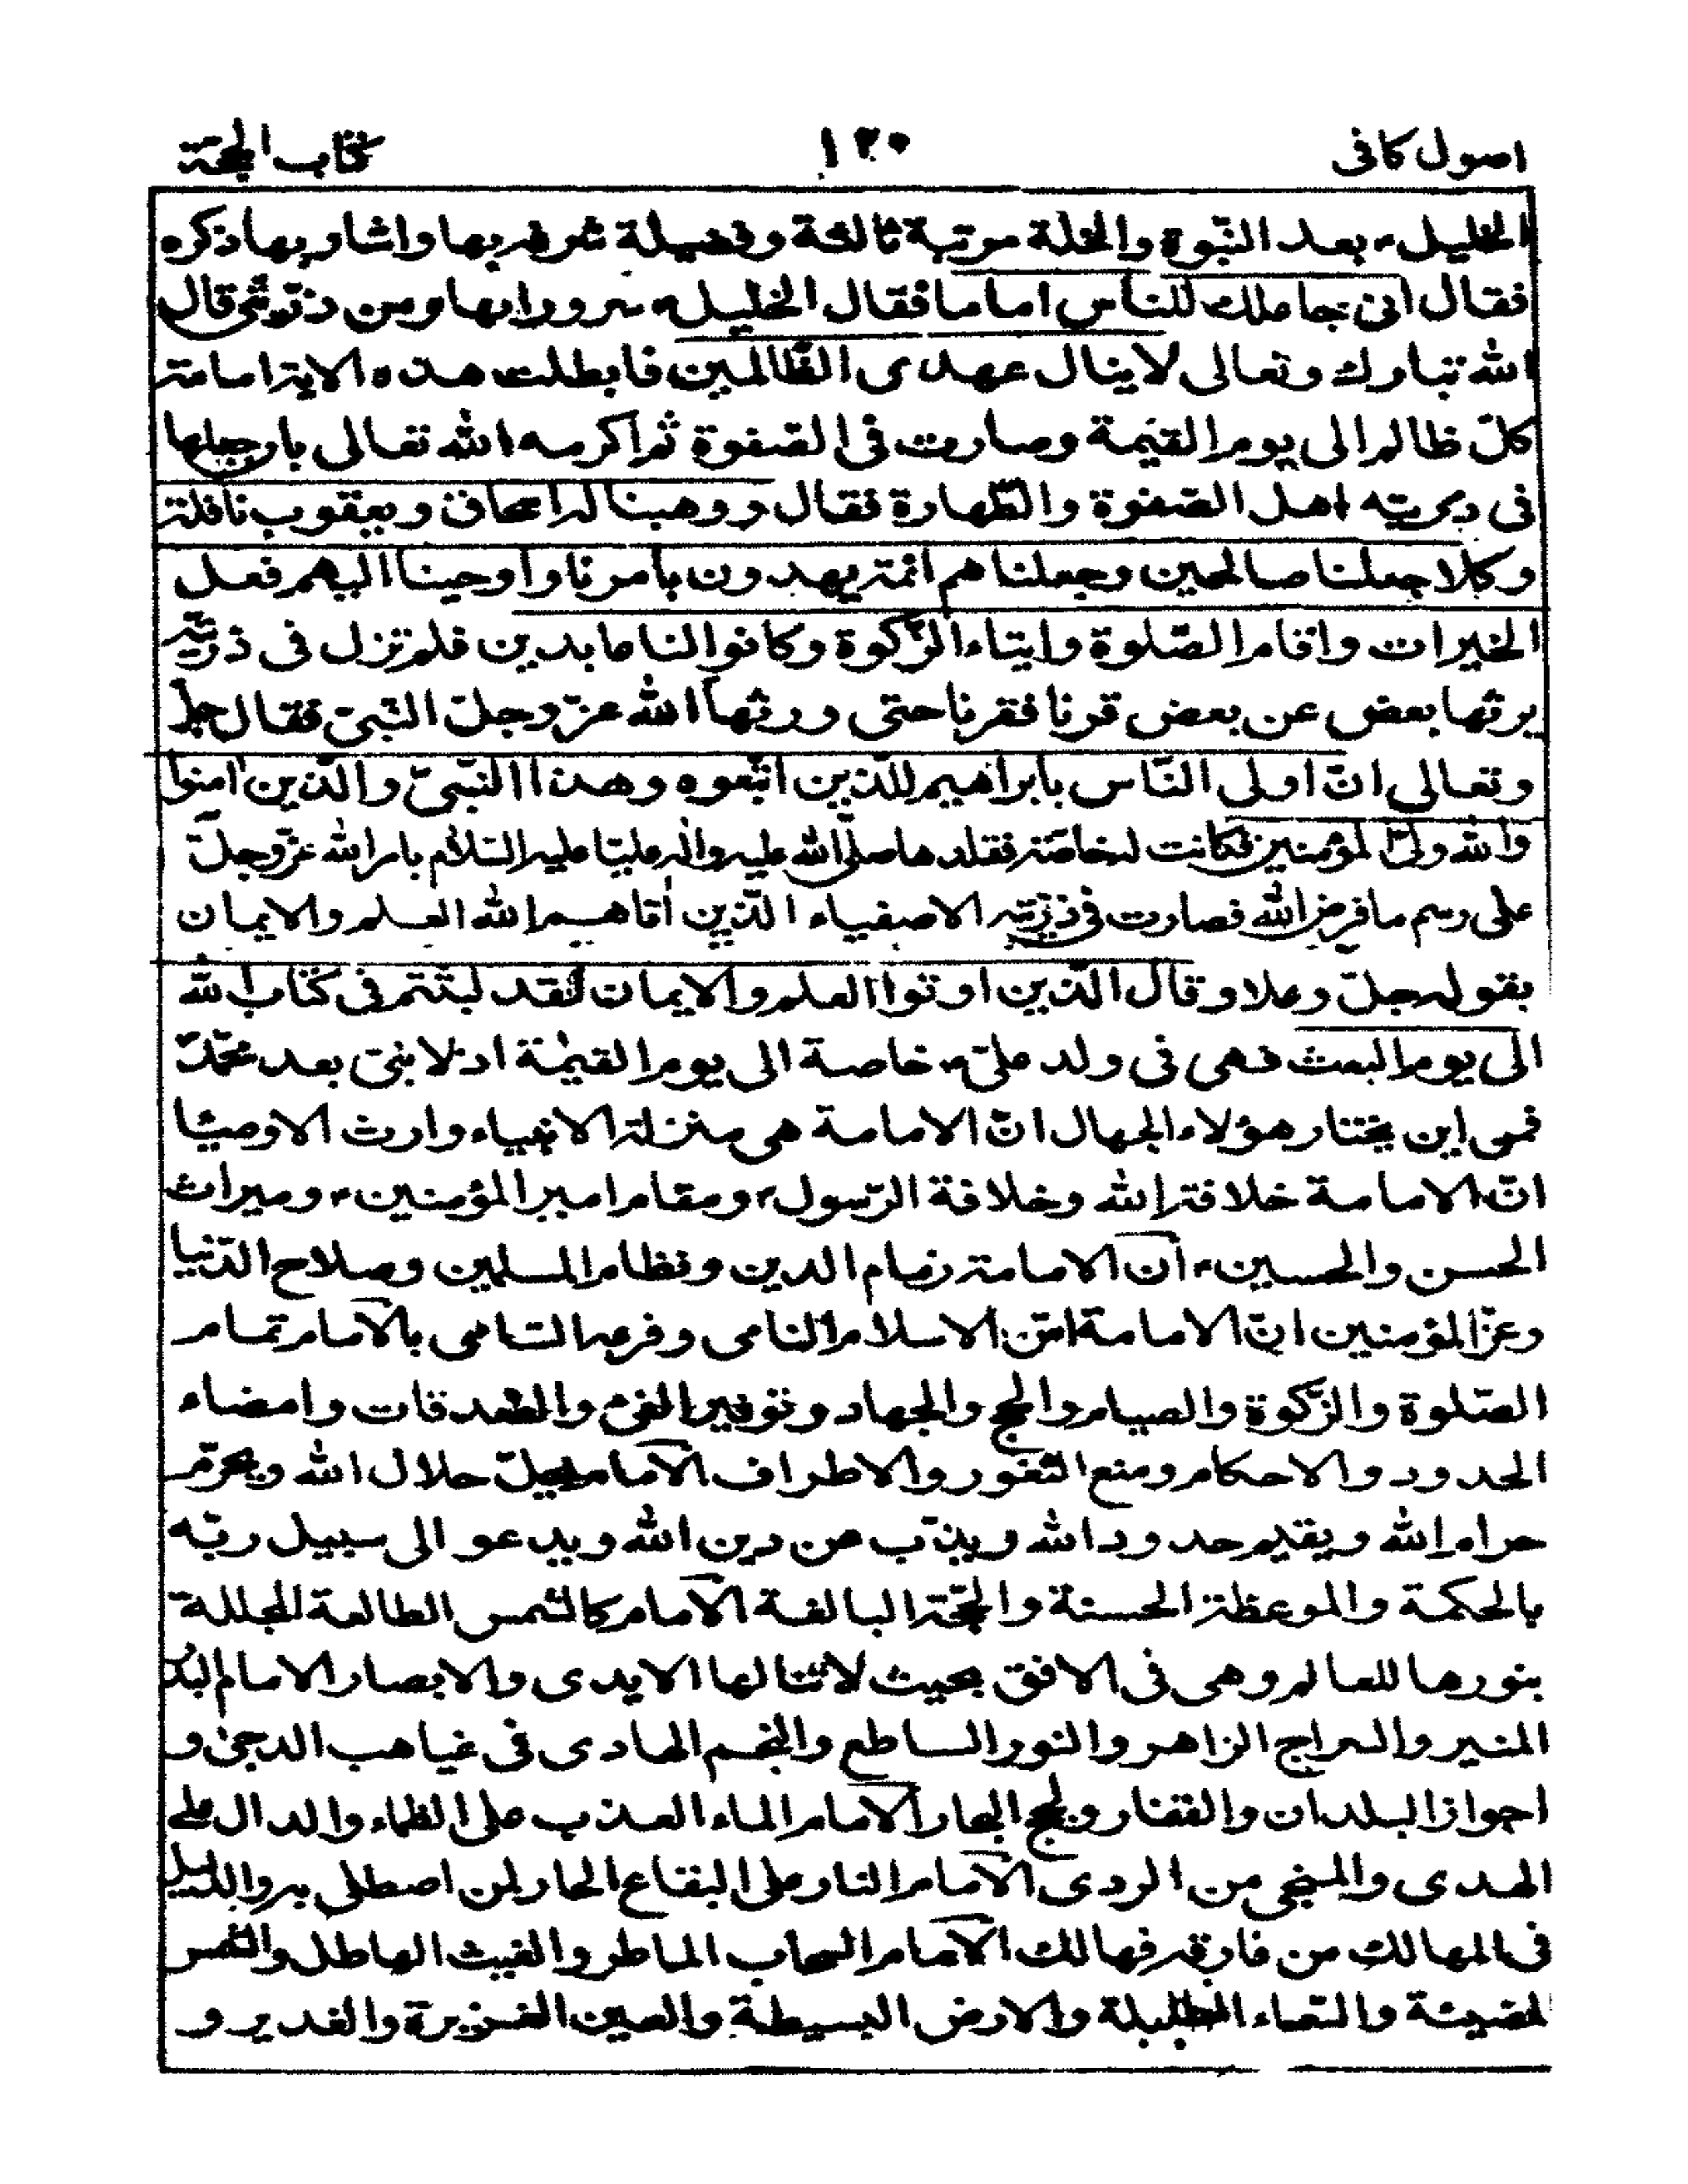 اصول كافى ١٢٠ كتاب الحجة
الخليل ع بعد النبّوة والخلة مرتبة ثالثة وفضيلة شرفه بها واشار بها ذكره
فقال انى جاعلك للناس اماما فقال الخليل ع سرورا بها ومن ذريتى قال
الله تبارك وتعالى لاينال عهدى الظّالمين فابطلت هذه الاية امامة
كلّ ظالم الى يوم القيمة وصارت فى الصّفوة ثم اكرمه الله تعالى بان جعلها
فى ذريته اهل الصّفوة والطّهارة فقال ووهبنا له اسحاق ويعقوب نافلة
وكلا جعلنا صالحين وجعلناهم ائمة يهدون بأمرنا واوحينا اليهم فعل
الخيرات واقام الصّلوة وايتاء الزّكوة وكانوا لنا عابدين فلم تزل فى ذريّته
يرثها بعض عن بعض قرنا فقرنا حتى ورثها الله عزّ وجلّ النّبىّ فقال جل
وتعالى انّ اولى النّاس بابراهيم للّذين اتّبعوه وهذا النّبىّ والّذين امنوا
والله ولىّ المؤمنين فكانت له خاصّة فقلدها صلّى الله عليه واله عليّا عليه السّلام بامر الله عزّ وجلّ
على رسم ما فرض الله فصارت فى ذرّيّته الاصفياء الّذين اتاهم الله العلم والايمان
بقوله جلّ وعلا وقال الّذين اوتوا العلم والايمان لقد لبثتم فى كتاب الله
الى يوم البعث فهى فى ولد علىّ ع خاصة الى يوم القيمة اذ لا نبىّ بعد محمّد
فمن اين يختار هؤلاء الجهال انّ الامامة هى منزلة الانبياء وارث الاوصيا
انّ الامامة خلافة الله وخلافة الرّسول ص ومقام امير المؤمنين ع وميراث
الحسن والحسين ع انّ الامامة زمام الدين ونظام المسلمين وصلاح الدّنيا
وعزّ المؤمنين انّ الامامة اسّ الاسلام النامى وفرعه السّامى بالامام تمام
الصّلوة والزّكوة والصيام والحج والجهاد وتوفير الفىء والصّدقات وامضاء
الحدود والاحكام ومنع الثّغور والاطراف الامام يحلّ حلال الله ويحرّم
حرام الله ويقيم حدود الله ويذبّ عن دين الله ويدعو الى سبيل ربّه
بالحكمة والموعظة الحسنة والحجّة البالغة الامام كالشّمس الطالعة المجللة
بنورها للعالم وهى فى الافق بحيث لا تنالها الايدى والابصار الامام البدر
المنير والسراج الزاهر والنور الساطع والنجم الهادى فى غياهب الدجى و
اجواز البلدان والقفار ولجج البحار الامام الماء العذب على الظماء والدال على
الهدى والمنجى من الردى الامام النار على البقاع الحار لمن اصطلى به والدليل
فى المهالك من فارقه فهالك الامام السحاب الماطر والغيث الهاطل والشّمس
المضيئة والسّماء الظليلة والارض البسيطة والعين الغزيرة والغدير و